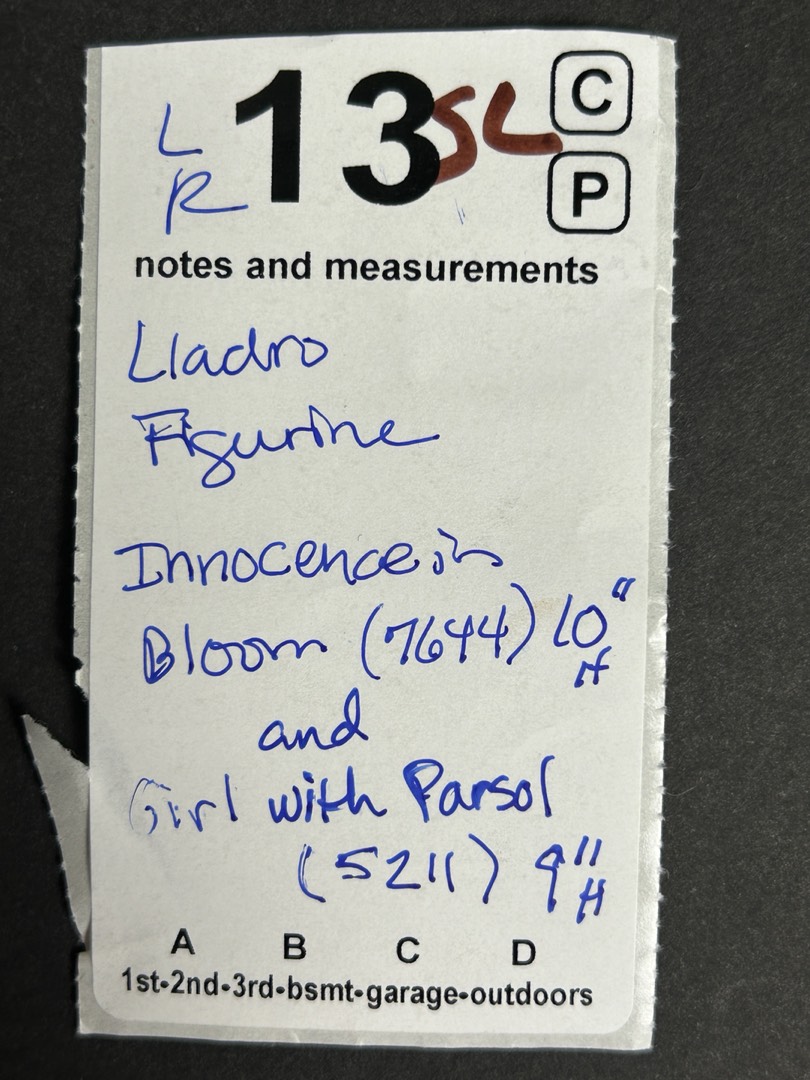 L
R
13 SL
C
P
notes and measurements
Lladro
Figurine
Innocence in
Bloom (7644) 10"
H
and
Girl with Parsol
(5211) 9"
H
A B C D
1st-2nd-3rd-bsmt-garage-outdoors